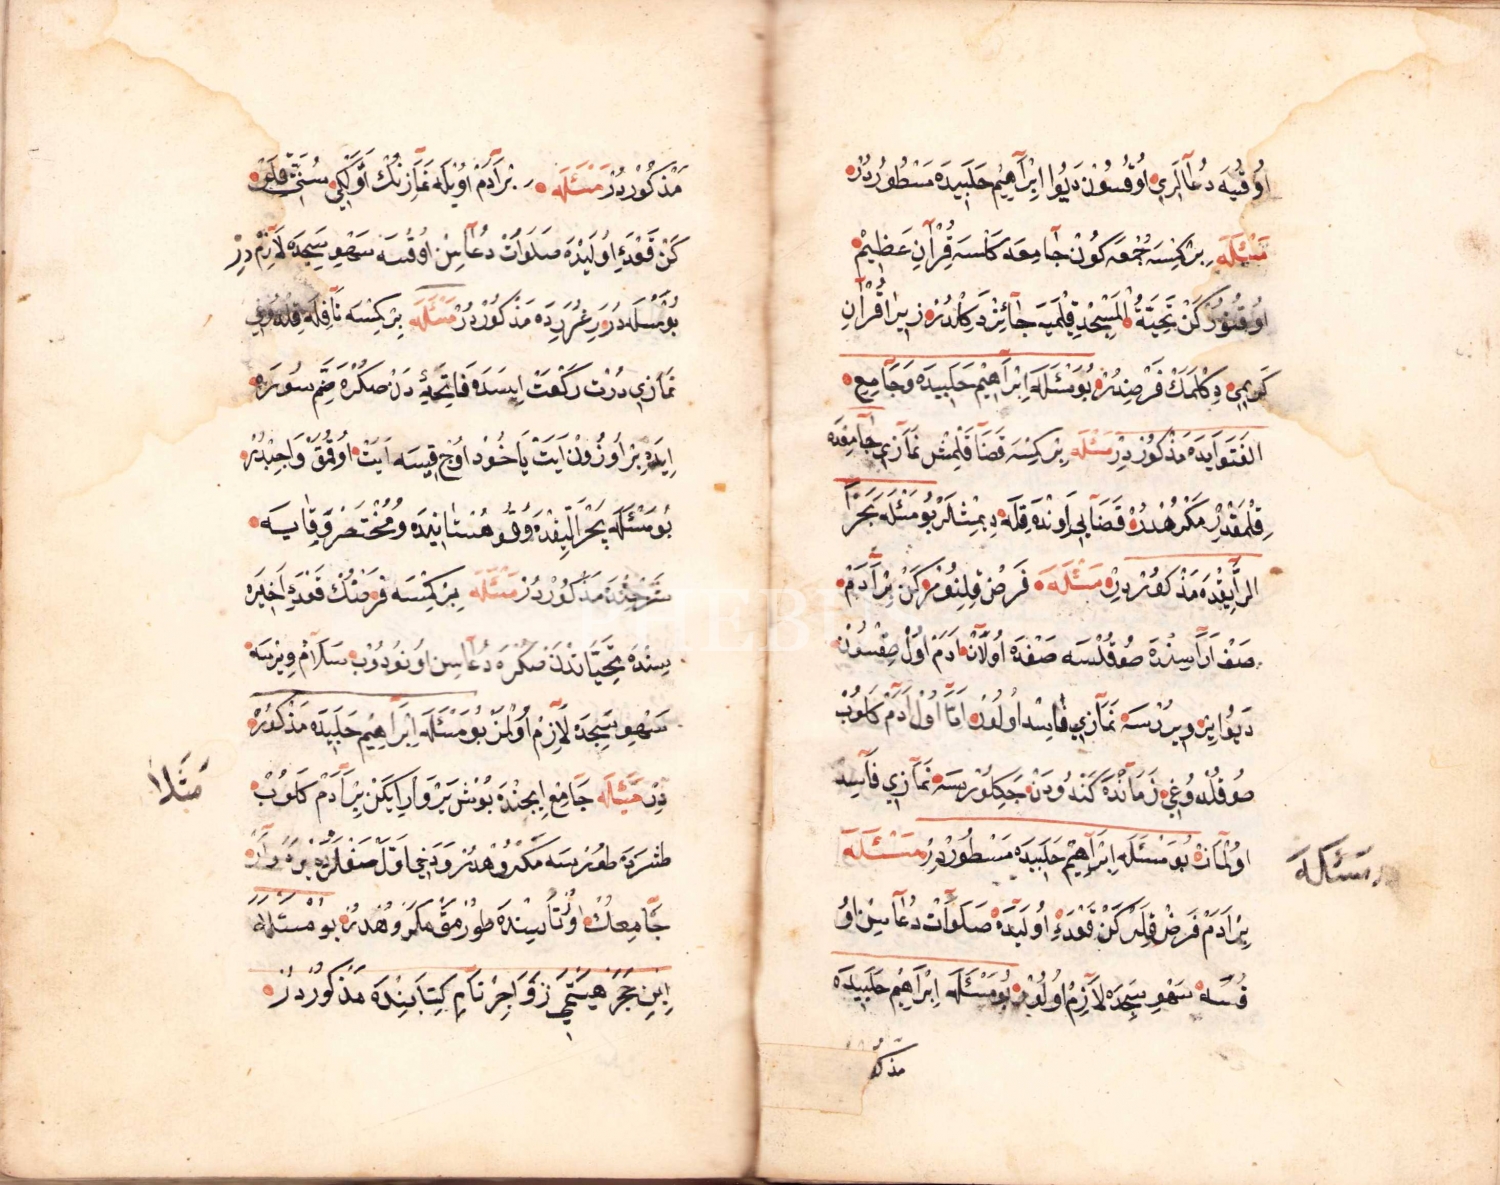 اوقیه دعالری اوقسون دیوا ابراهیم حلبیده مسطوردر
مسئله بر کسه جمعه کون جامعه کلسه قرآن عظیم
اوقنور کن تحیة المسجد قلمیه جائز دکلدر زیرا قرآن
کریمی دکلمك فرضدر بو مسئله ابراهیم حلبیده و جامع
الفتواده مذکوردر مسئله بر کسه قضا قلمش نمازی جامعده
قلمقدر مکروهدر قضایی اونده قله دیمشلر بو مسئله بحر
الرآیقده مذکوردر مسئله فرض قلنور کن بر آدم
صف اراسنده صوقلسه صفده اولان ادم اول صقسون
دیو این ویررسه نمازی فاسد اولور اما اول آدم کلوب
صوقلدوغی زمانده کندودن جکلورسه نمازی فاسد
اولماز بو مسئله ابراهیم حلبیده مسطوردر مسئله
بر ادم فرض قلرکن قعدۀ اولیده صلوات دعاسن او
قسه سهو سجده لازم اولور بو مسئله ابراهیم حلبیده
مذکو
مسئله
مذکوردر مسئله بر آدم اویله نمازنك اولکی سنتی قلور
کن قعدۀ اولیده صلوات دعاسن اوقسه سهو سجده لازم در
بو مسئله درر غررده مذکوردر مسئله بر کسه نافله قلدوغی
نمازی درت رکعت ایسه ده فاتحۀ دن صکره ضم سوره
ایده بر اوزون ایت یاخود اوج قیسه ایت اوقمق واجبدر
بو مسئله بحر الرایقده و قوهستانیده و مختصر وقایه
شرحنده مذکوردر مسئله بر کسه فرضنك قعدۀ اخیره
سنده تحیاتدن صکره دعاسن اونودوب سلام ویرسه
سهو سجده لازم اولمز بو مسئله ابراهیم حلبیده مذکور
در مسئله جامع ایجنده بوش یر وار ایکن بر آدم کلوب
طشرده طورسه مکروهدر و دخی اول صفلرده یر وار
جامعك اورتاسنده طورمق مکروهدر بو مسئله
ابن حجر هیتمی زواجر نام کتابنده مذکوردر
مثلا